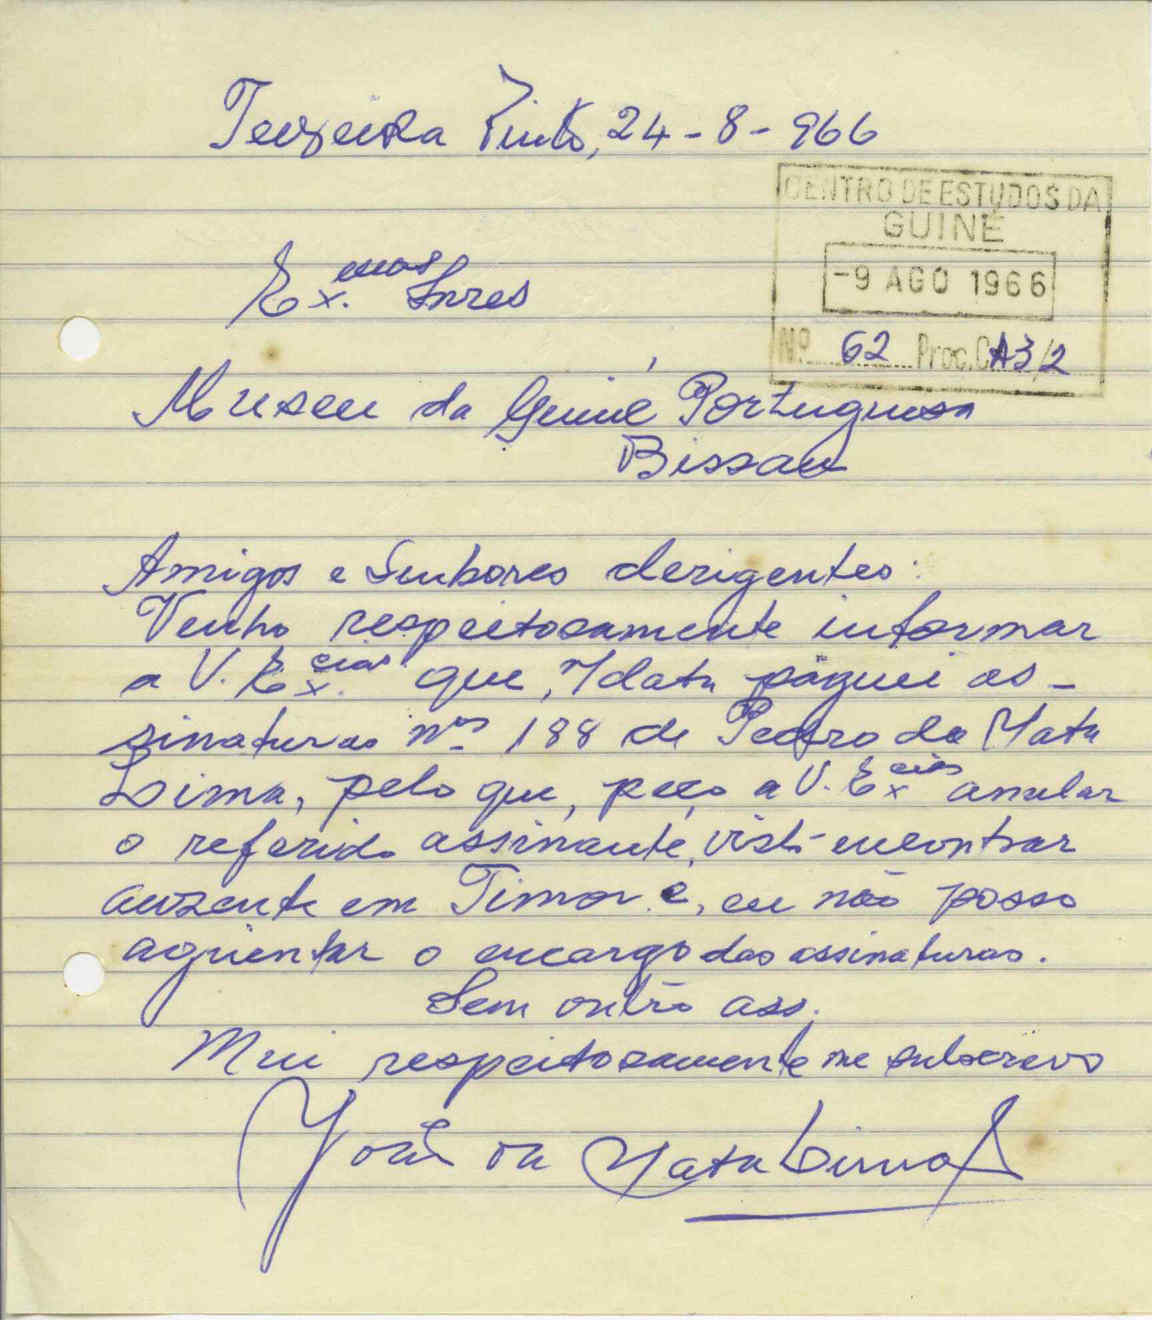 Teixeira Pinto, 24-8-966
CENTRO DE ESTUDOS DA
GUINÉ
-9 AGO 1966
Nº 62 Proc. CA3/2
Ex.mos Snres
Museu da Guiné Portuguesa
Bissau
Amigos e Senhores derigentes:
Venho respeitosamente informar
a V. Ex.cias que, n/data páguei as-
sinaturas nos 188 de Pedro da Mata
Lima, pelo que, peço a V. Excias anular
o referido assinante, visto encontrar
auzente em Timor e, eu não posso
agùentar o encargo das assinaturas.
Sem outro ass.
Mui respeitosamente me subscrevo
João da Mata Lima